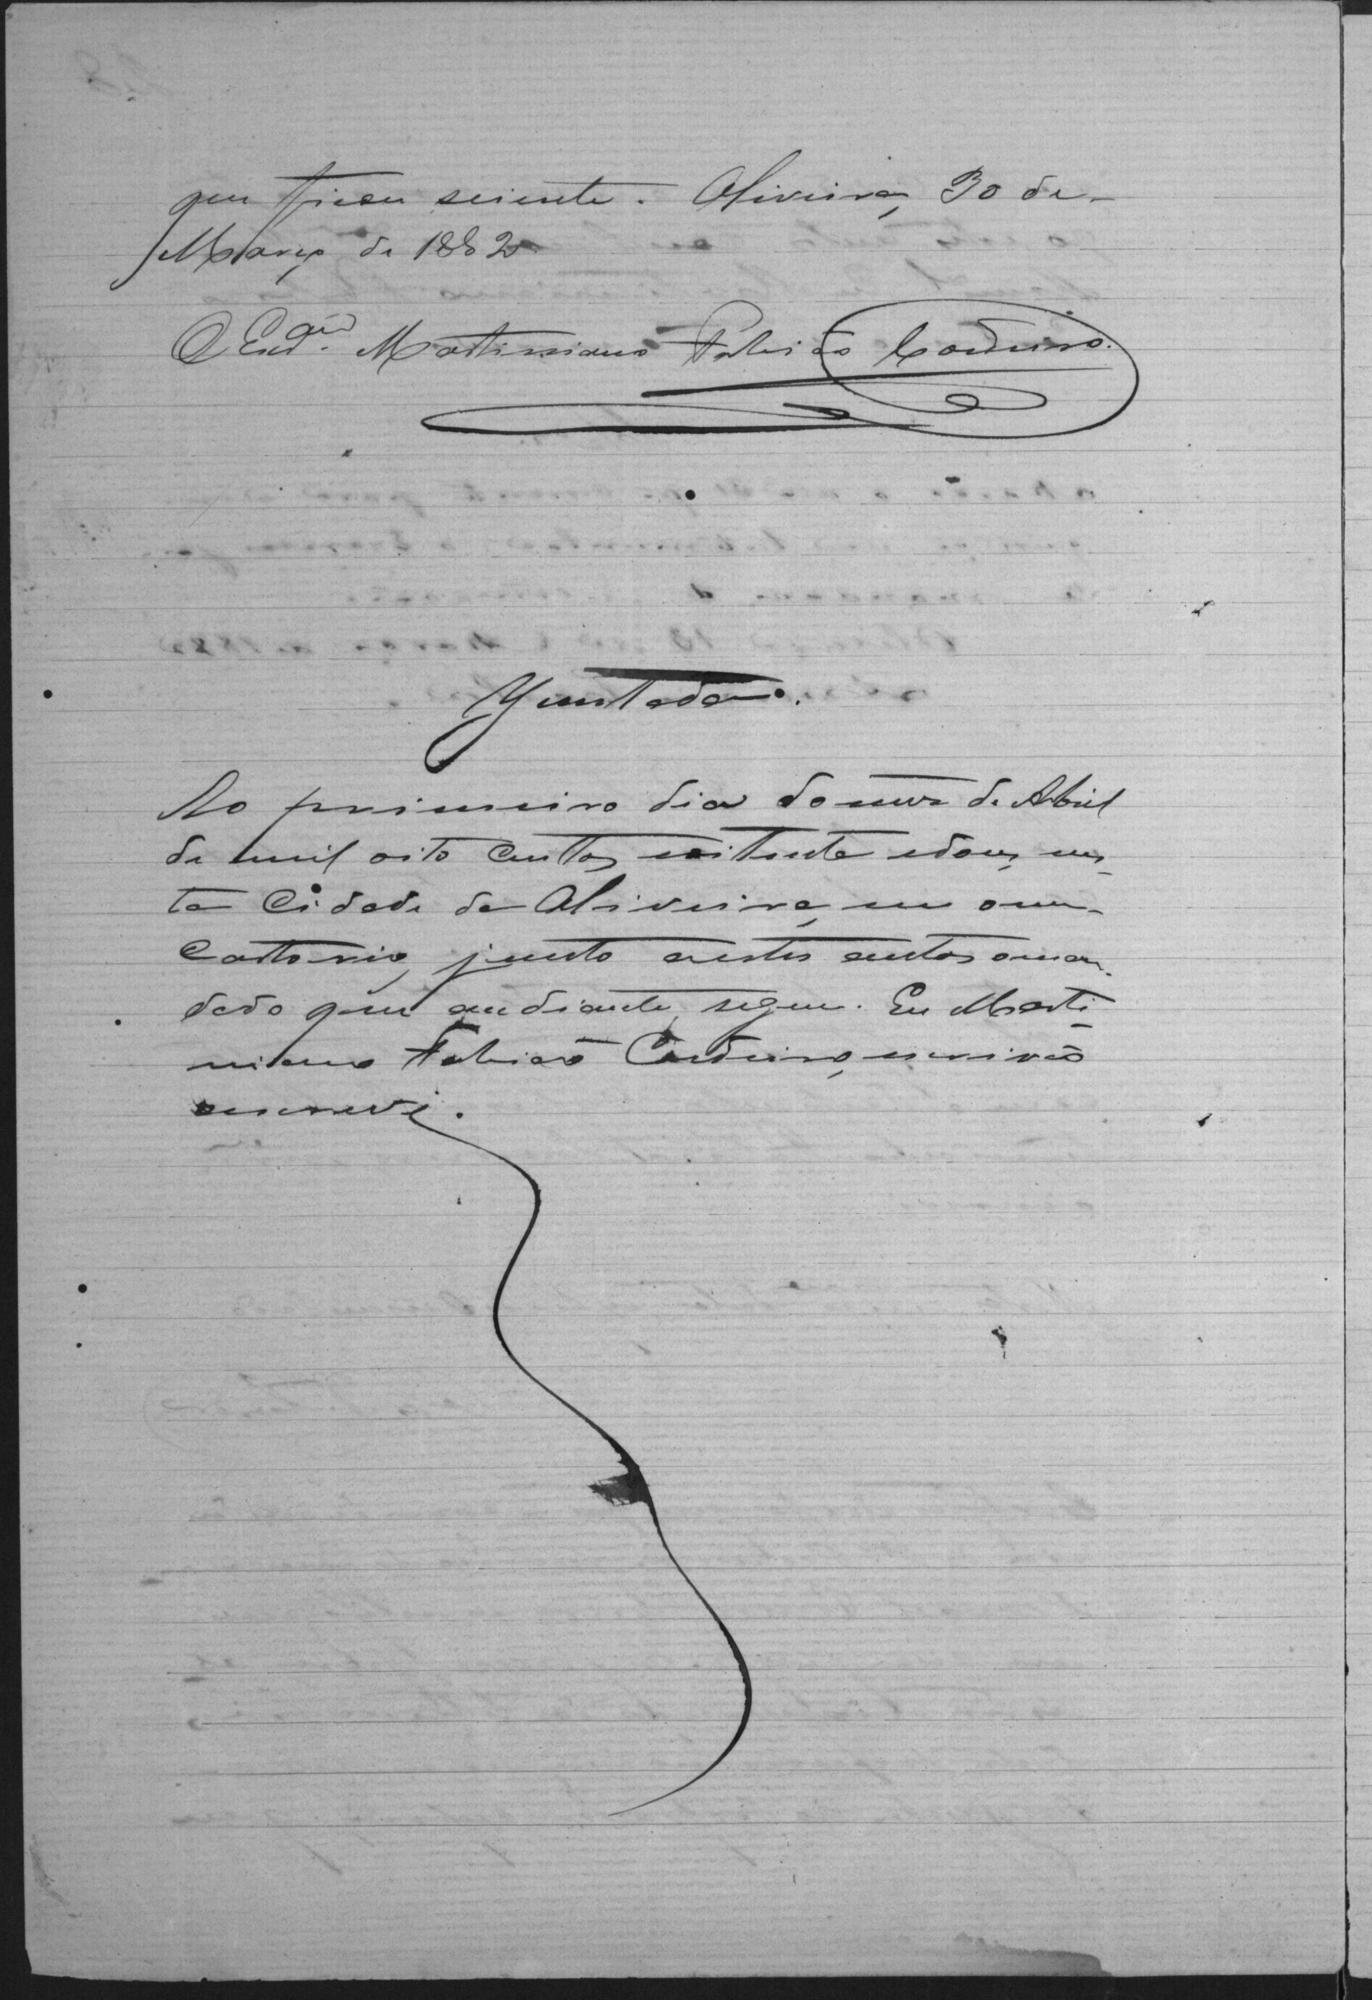 que ficou sciente. Oliveira, 30 de
Março de 1882
O Escr.am Martiniano Fabião Cordeiro.
Yuntada.
Ao primeiro dia do mez de Abril
de mil oito centos e oitenta e dous, nes
ta Cidade de Oliveira, em o meu
Cartorio, junto a estes autos o man
dado que au diante segue. Eu Marti
niano Fabião Cordeiro, escrivão
escrevi.